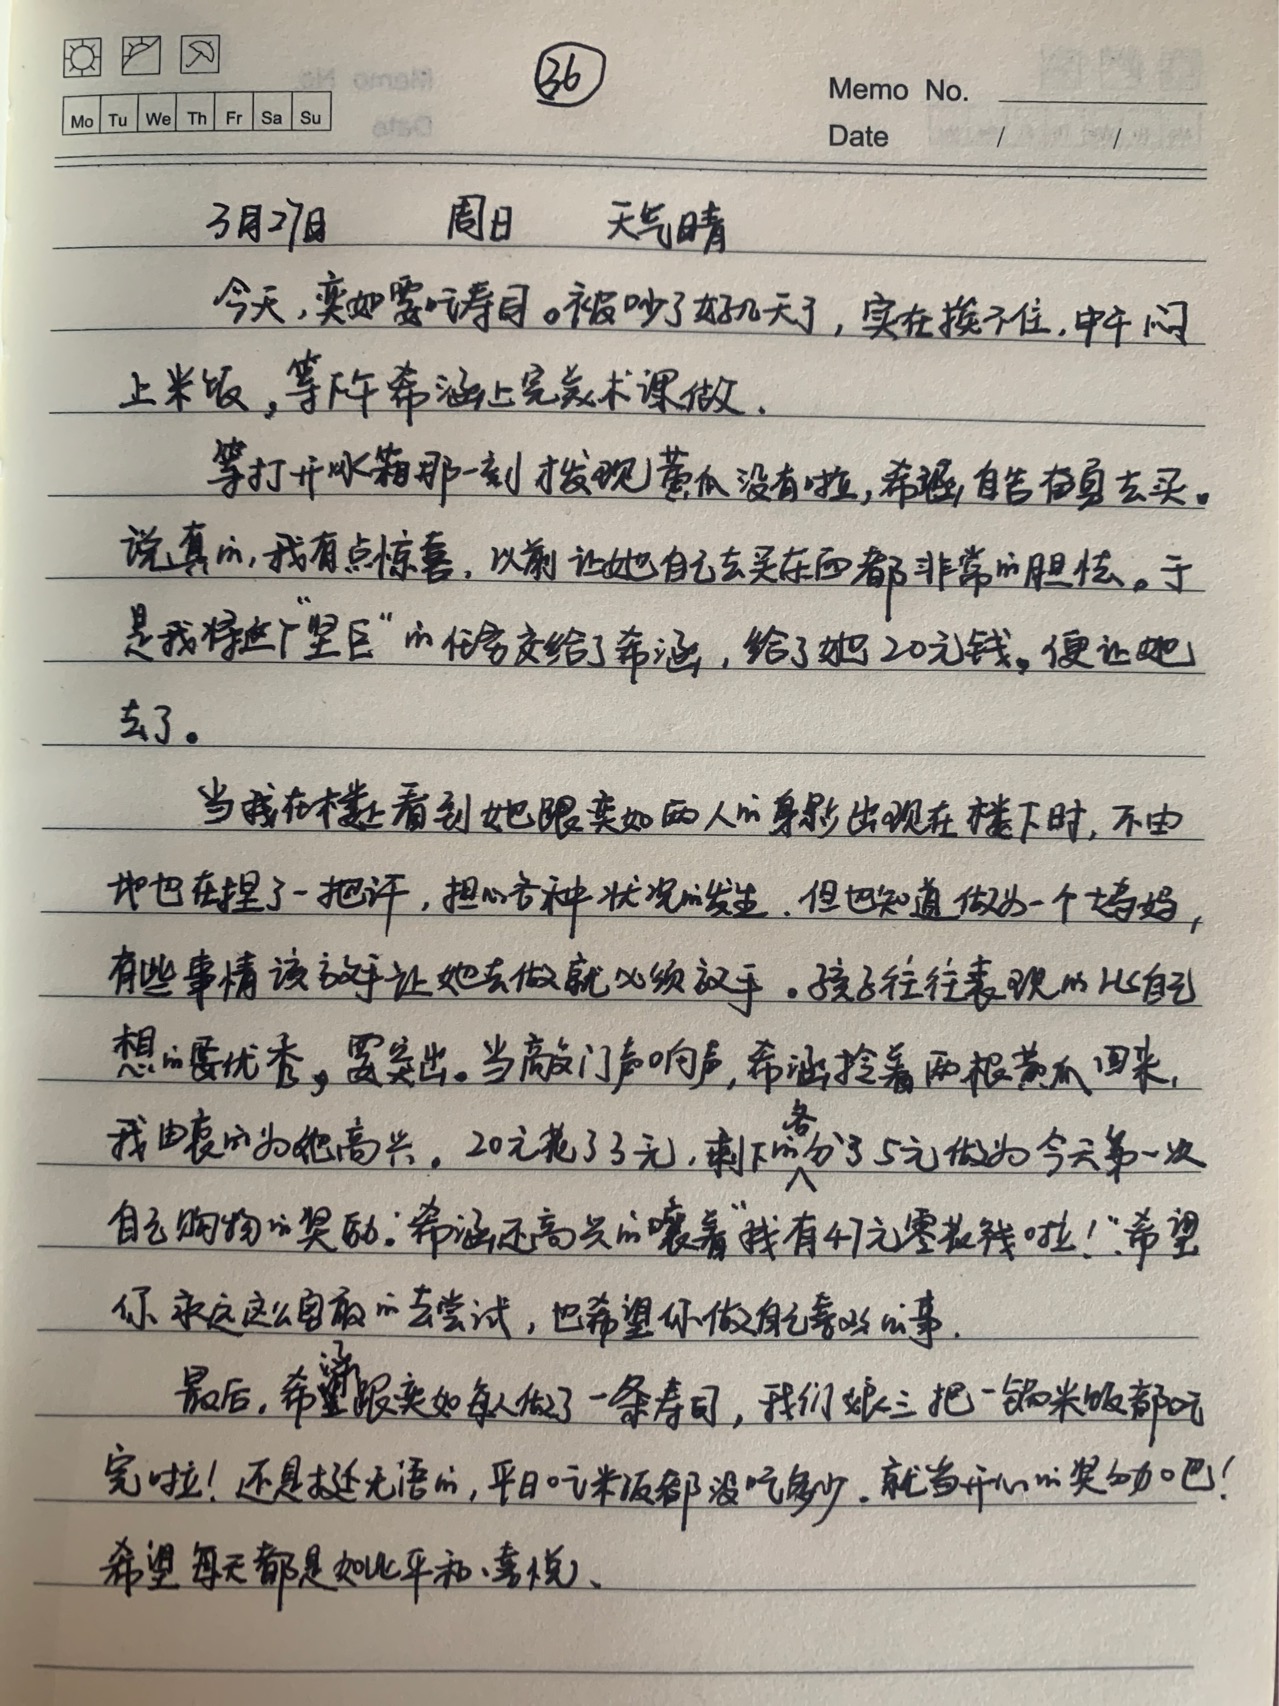 36
Memo No.
Mo Tu We Th Fr Sa Su
Date / /
3月27日 周日 天气晴
今天,奕如要吃寿司。被吵了好几天了,实在挨不住,中午闷
上米饭,等下午希涵上完美术课做.
等打开冰箱那一刻才发现黄瓜没有啦,希涵自告奋勇去买。
说真的,我有点惊喜,以前让她自己去买东西都非常的胆怯。于
是我将这个"坚巨"的任务交给了希涵,给了她20元钱。便让她
去了。
当我在楼上看到她跟奕如两人的身影出现在楼下时,不由
地也在捏了一把汗,担心各种状况的发生.但也知道做为一个妈妈,
有些事情该放手让她去做就必须放手。孩子往往表现的比自己
想的要优秀,要突出。当敲门声响声,希涵拎着两根黄瓜回来,
我由衷的为她高兴。20元花了3元,剩下的各分了5元做为今天第一次
自己购物的奖励.希涵还高兴的嚷着"我有47元零花钱啦!".希望
你永远这么勇敢的去尝试,也希望你做自己喜欢的事.
最后,希涵跟奕如每人做了一条寿司,我们娘三把一锅米饭都吃
完啦!还是挺无语的,平日吃米饭都没吃多少.就当开心的奖励吧!
希望每天都是如此平和、喜悦、